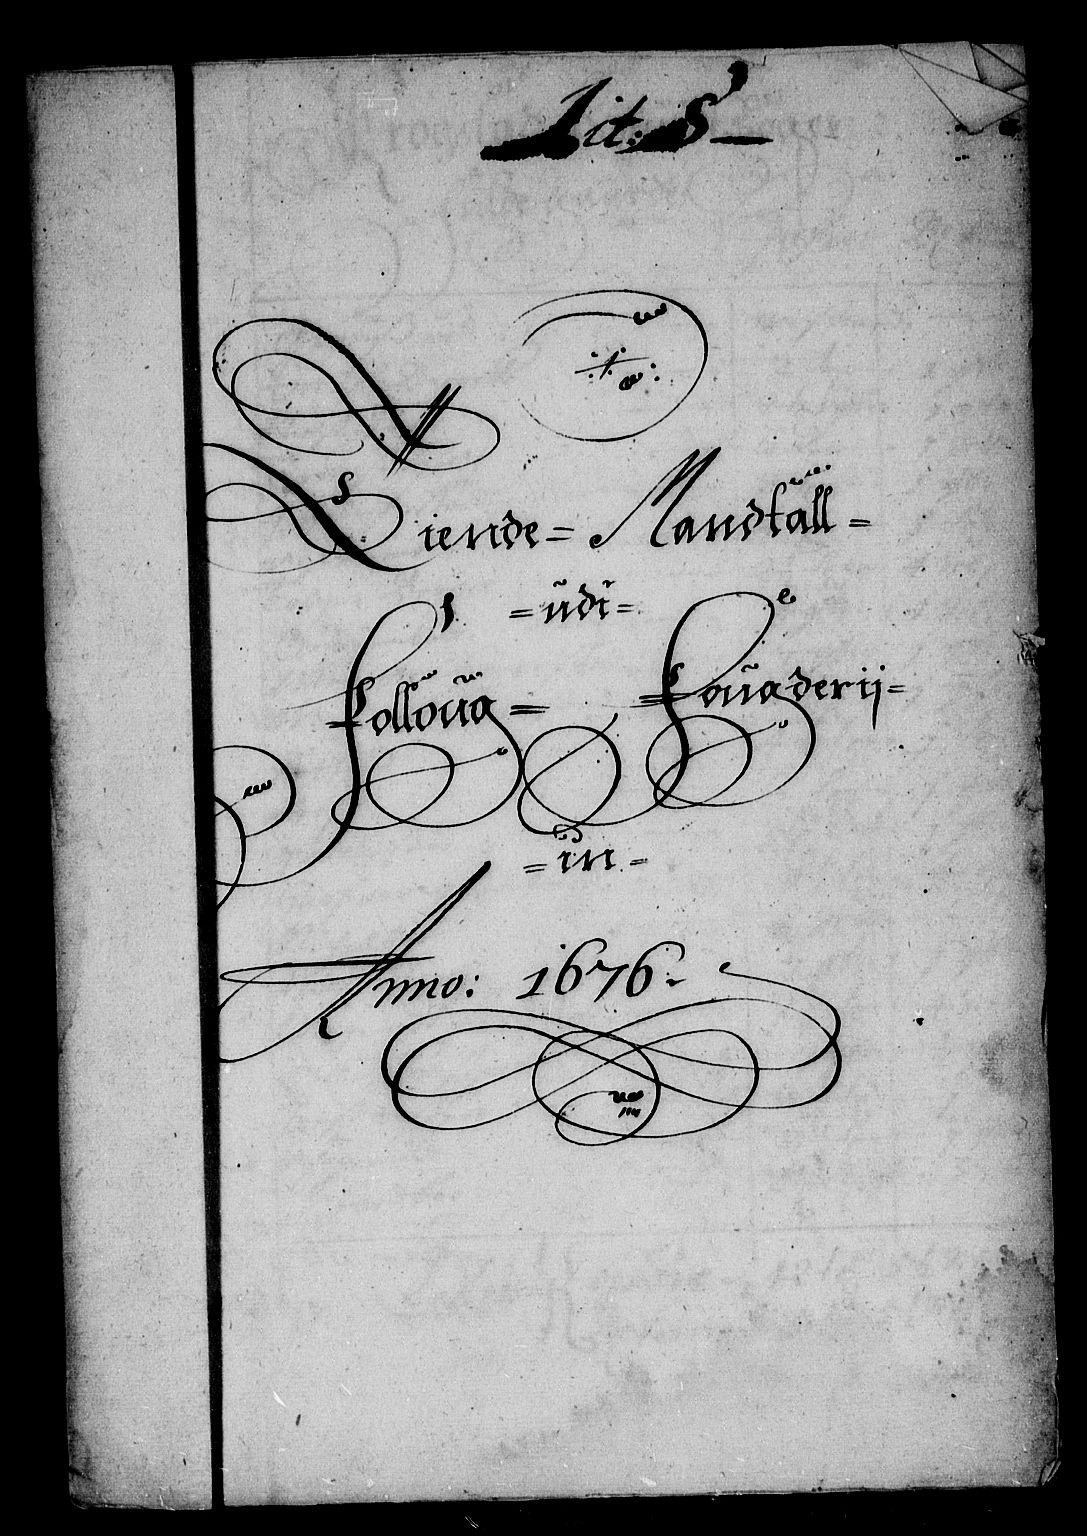 Lit: S
Tiende= Mandtall=
=ŭdi=
Folloŭg= Foŭgderij=
=in=
Anno: 1676.